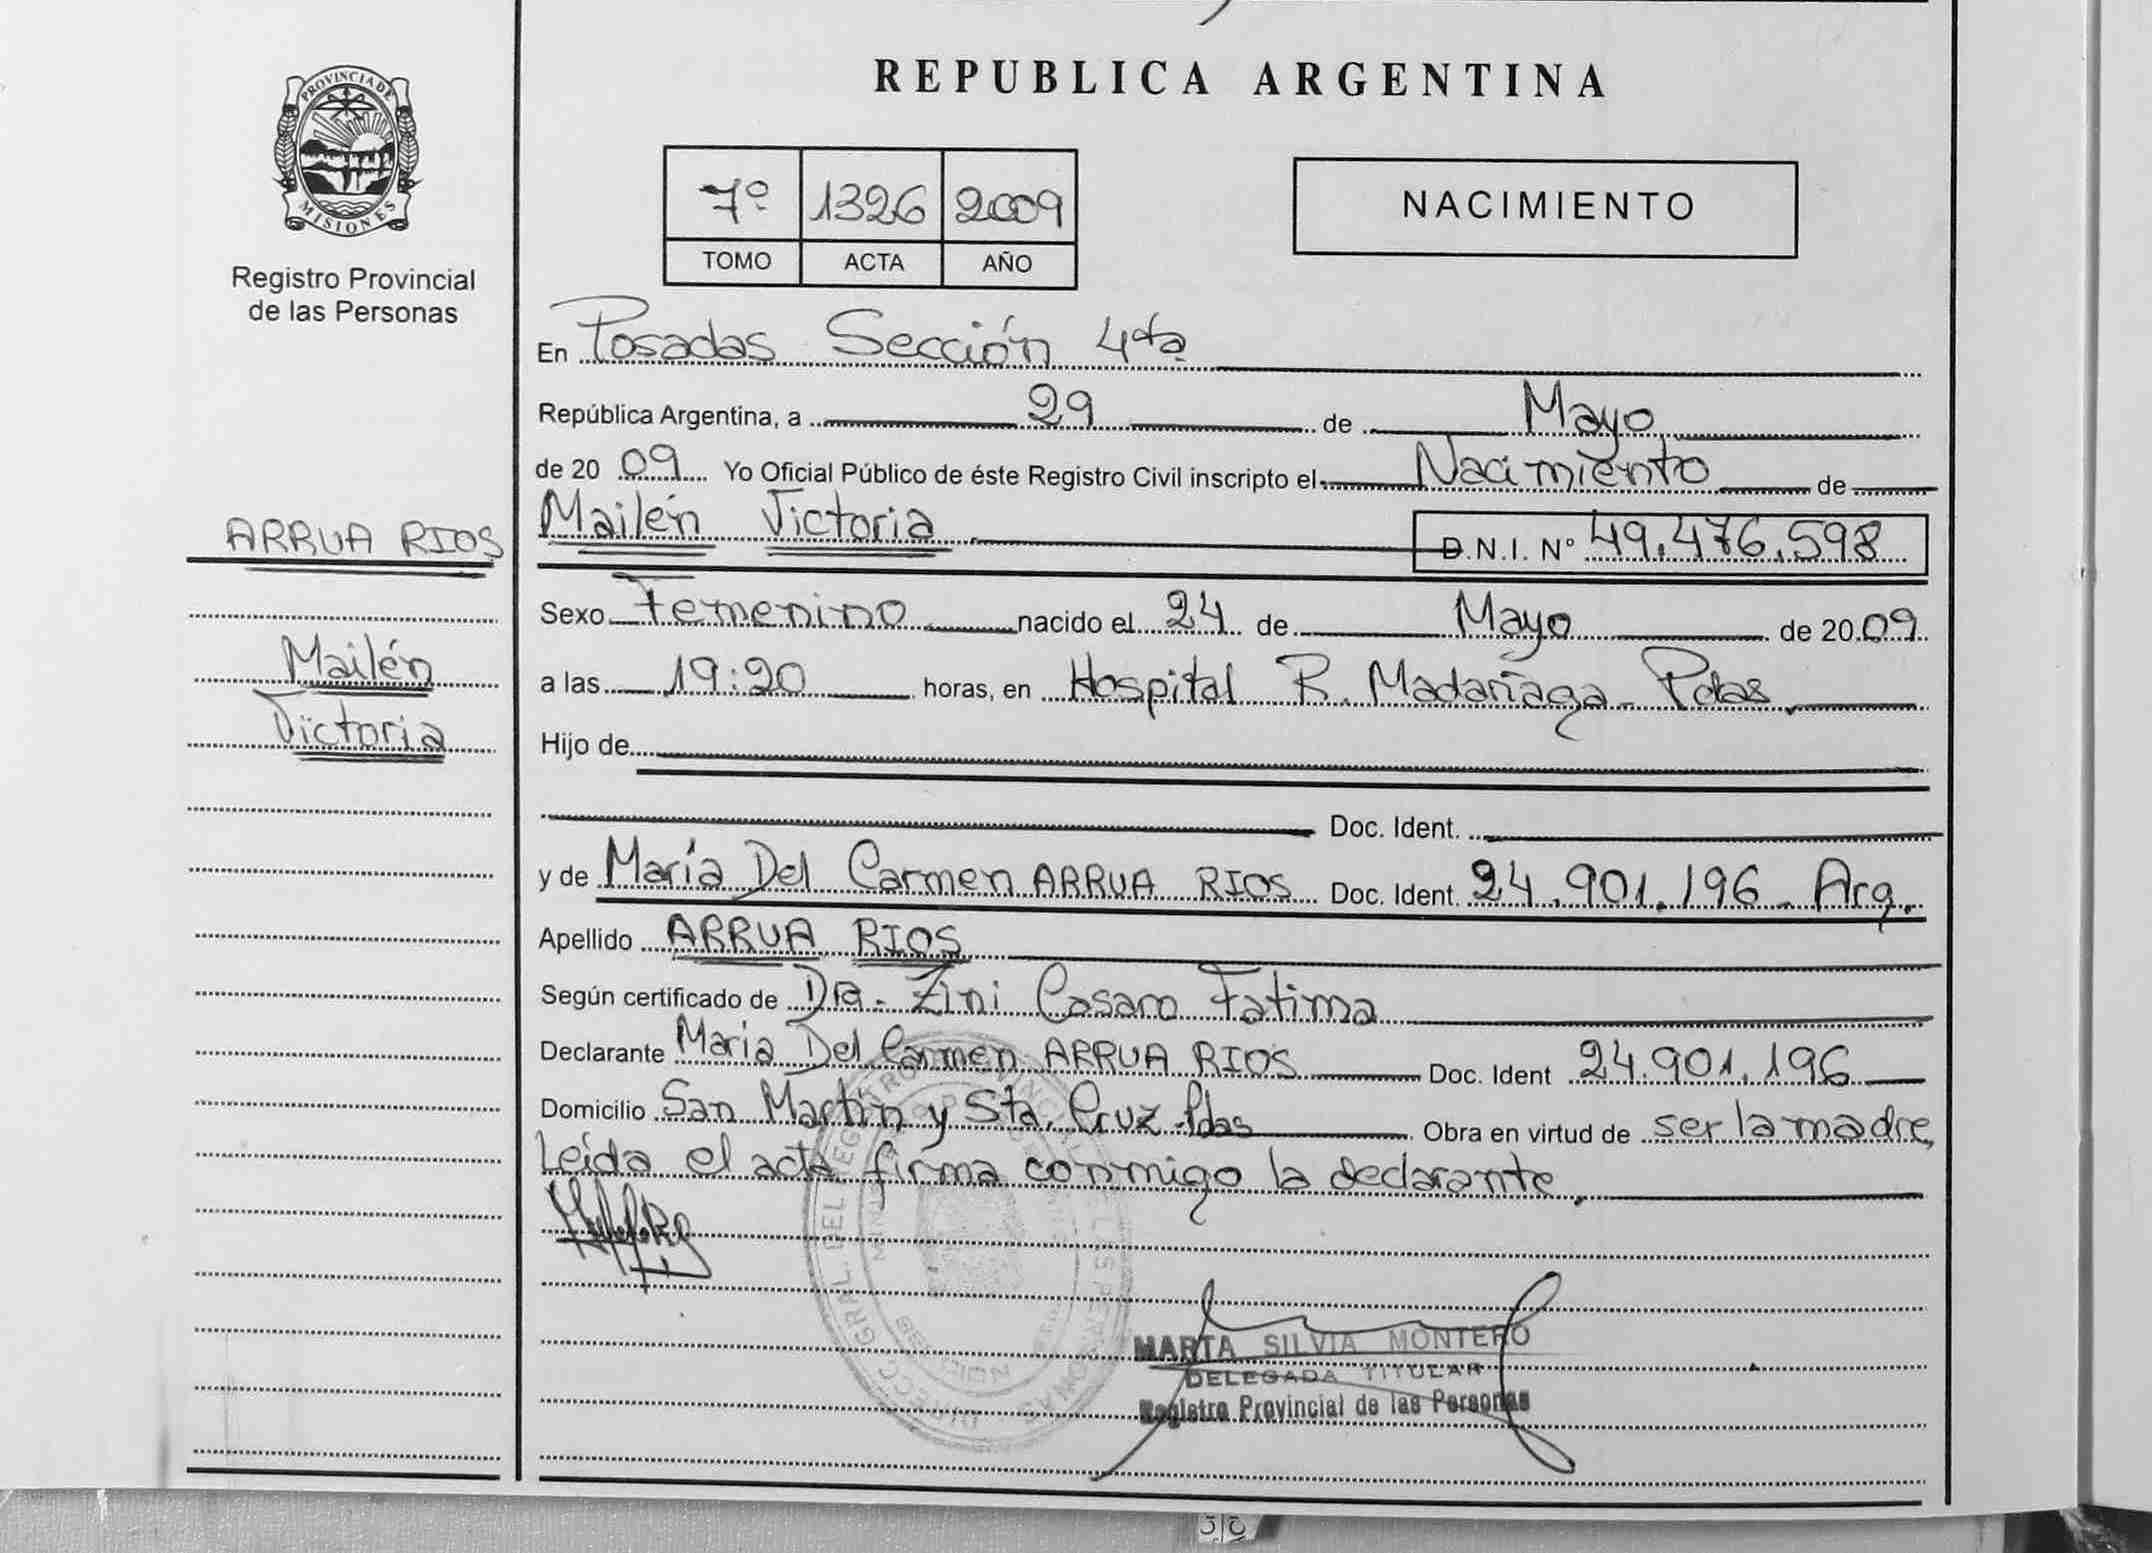 PROVINCIA DE
MISIONES
Registro Provincial
de las Personas
ARRUA RIOS
Mailén
Victoria
REPUBLICA ARGENTINA
7º 1326 2009
TOMO ACTA AÑO
NACIMIENTO
En Posadas Sección 4ta
República Argentina, a 29 de Mayo
de 20 09 Yo Oficial Público de éste Registro Civil inscripto el Nacimiento de
Mailén Victoria D.N.I. Nº 49.476.598
Sexo Femenino nacido el 24 de Mayo de 20 09
a las 19:20 horas, en Hospital R. Madariaga - Pdas.
Hijo de
Doc. Ident.
y de María Del Carmen ARRUA RIOS Doc. Ident. 24.901.196 - Arg.
Apellido ARRUA RIOS
Según certificado de DRA. Zini Casaro Fatima
Declarante Maria Del Carmen ARRUA RIOS Doc. Ident 24.901.196
Domicilio San Martín y Sta. Cruz - Pdas Obra en virtud de ser la madre,
Leída el acta firma conmigo la declarante.
MARTA SILVIA MONTERO
DELEGADA TITULAR
Registro Provincial de las Personas